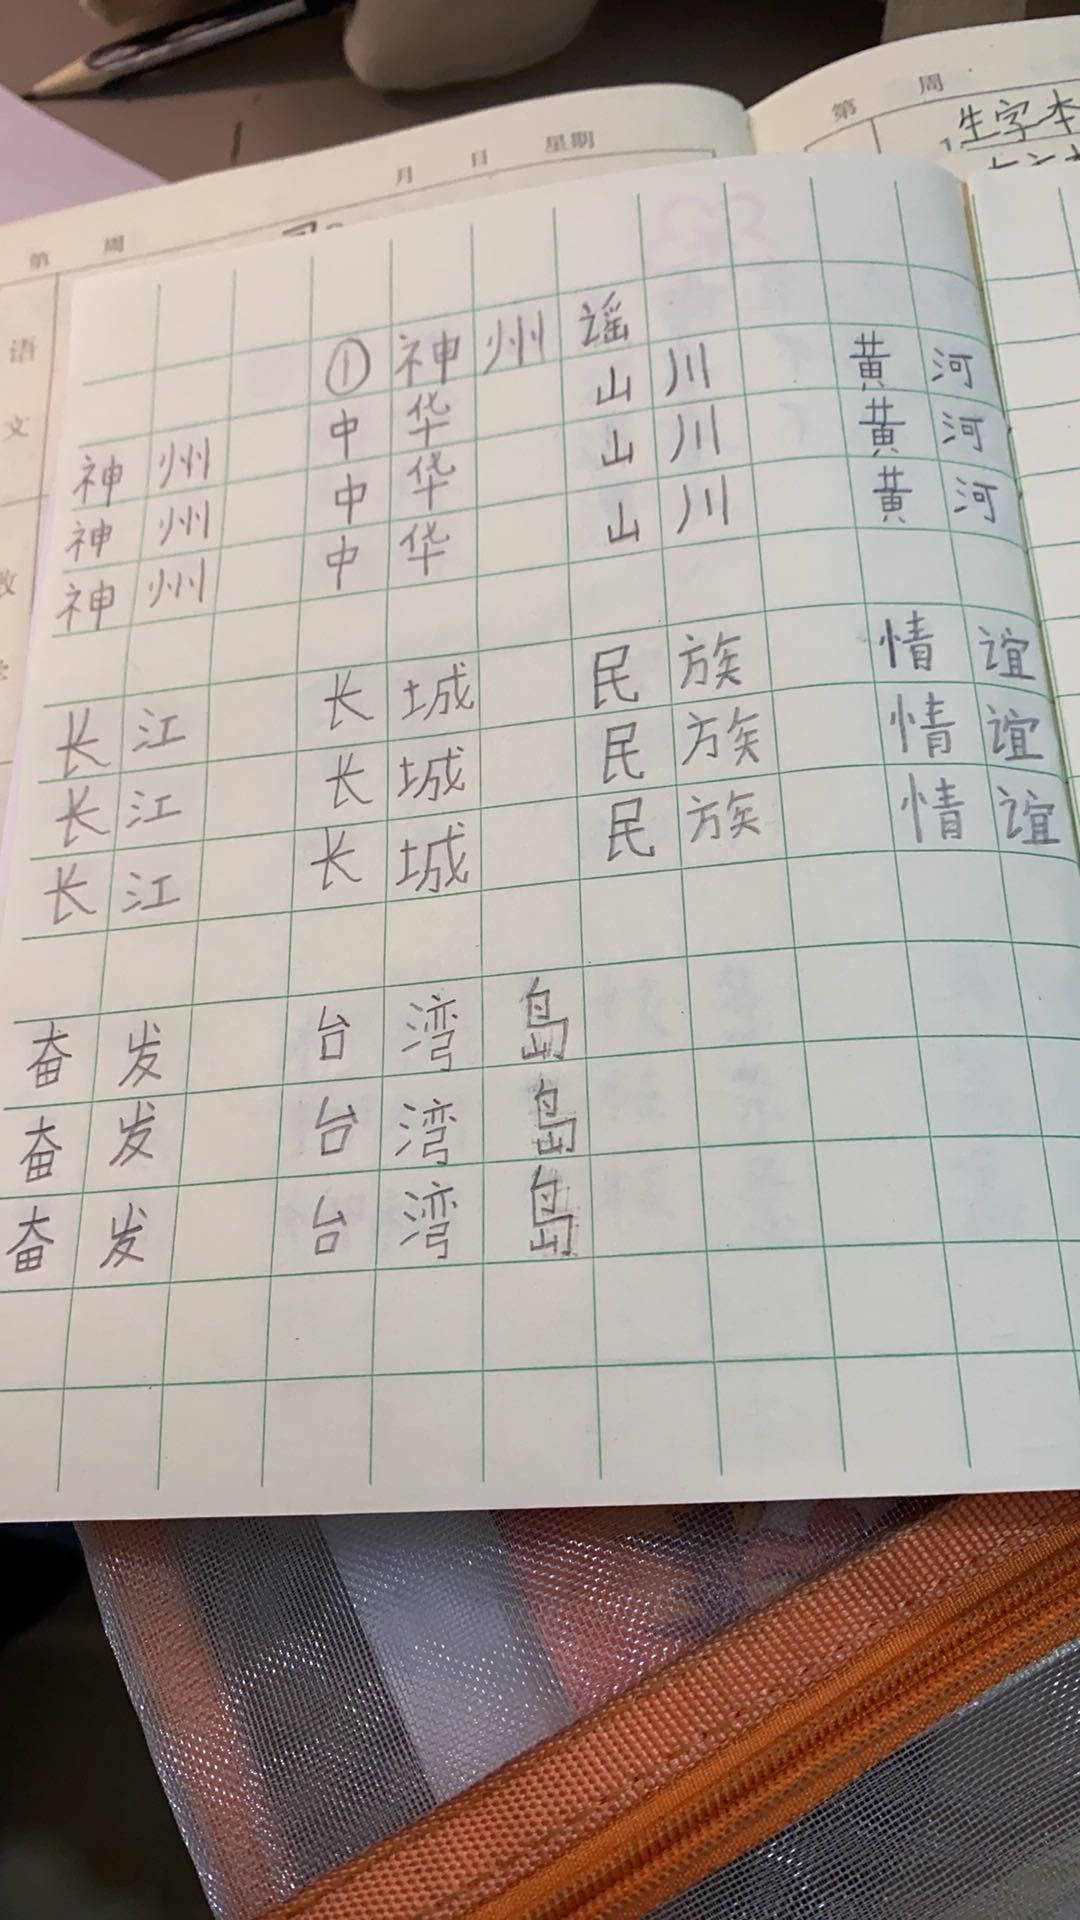 第 周
月 日 星期
第 周
1. 生字本
语
文
①神州谣
神州 中华 山川 黄河
神州 中华 山川 黄河
神州 中华 山川 黄河
长江 长城 民族 情谊
长江 长城 民族 情谊
长江 长城 民族 情谊
奋发 台湾岛
奋发 台湾岛
奋发 台湾岛